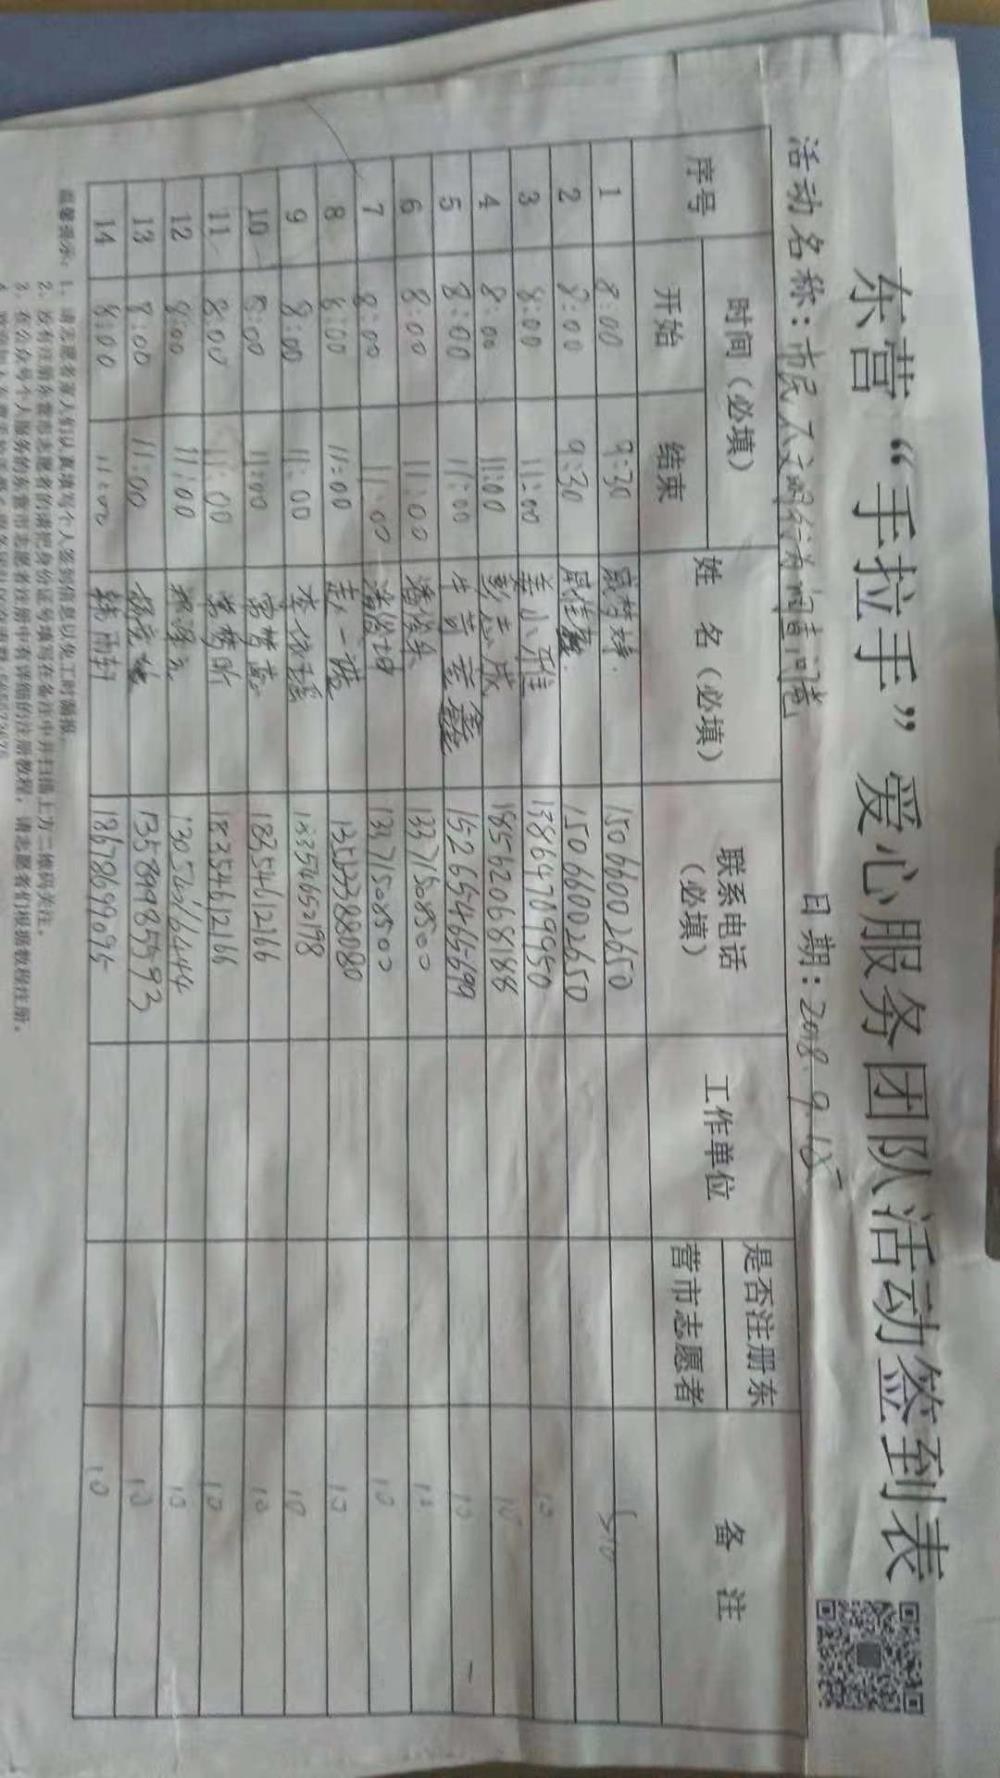 东营“手拉手”爱心服务团队活动签到表
活动名称：市民不文明行为 问卷 日期：2018.9.15
序号 时间（必填） 姓 名（必填） 联系电话（必填） 工作单位 是否注册东营市志愿者 备 注
开始 结束
1 8:00 9:30 戚梦婷 15066002650 510
2 8:00 9:30 戚佳 15066002650
3 8:00 11:00 姜小雅 13864709950 10
4 8:00 11:00 彭志成 18562068188 10
5 8:00 11:00 15265466699 10
6 8:00 11:00 13371508500 10
7 8:00 11:00 13371508500 10
8 8:00 11:00 赵一 13513388080 10
9 8:00 11:00 李 10
10 8:00 11:00 常梦 18354612166 10
11 8:00 11:00 常梦 18354612166 10
12 8:00 11:00 10
13 8:00 11:00 13589985593 10
14 8:00 11:00 韩雨轩 18678699095 10
温馨提示：1、请志愿者家人们认真填写个人签到信息以免工时漏报。
2、没有注册东营市志愿者的请把身份证号填写在备注中并扫描上方二维码关注。
3、在公众号个人服务的东营市志愿者注册中有详细的注册教程，请志愿者们根据教程注册。